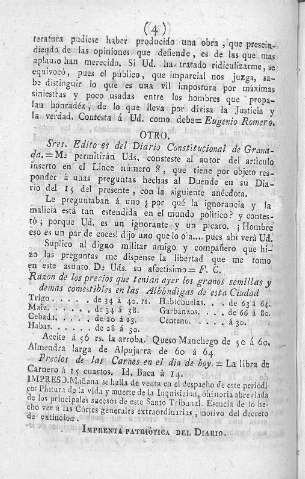 (4)
teratura pudiese haber producido una obra, que prescin-
diendo de las opiniones que defiende, es de las que mas
aplauso han merecido. Si Ud. ha tratado ridiculizarme, se
equivocó, pues el público, que imparcial nos juzga, sa-
be distinguir lo que es una vil impostura por máximas
siniestras y poco usadas entre los hombres que propa-
lan honradéz, de lo que lleva por divisa la Justicia y
la verdad. Contesta á Ud. como debe=Eugenio Romero.
OTRO.
Sres. Editores del Diario Constitucional de Grana-
da.=Me permitirán Uds. conteste al autor del articulo
inserto en el Lince número 8, que tiene por objeto res-
ponder á unas preguntas hechas al Duende en su Dia-
rio del 15 del presente, con la siguiente anécdota.
Le preguntaban á uno ¿por qué la ignorancia y la
malicia está tan estendida en el mundo político? y contes-
tó; porque Ud. es un ignorante y un picaro. ¡Hombre
eso es un par de coces! dijo uno que lo oía.... pues ahí verá Ud.
Suplico al digno militar amigo y compañero que hi-
zo las preguntas me dispense la libertad que me tomo
en este asunto De Uds. su afectísimo = F. C.
Razon de los precios que tenían ayer los granos semillas y
demas comestibles en las Albóndigas de esta Ciudad
Trigo . . . . . de 34 á 40. rs. Habichuelas. . . de 63 á 64.
Maíz. . . . . . de 34 á 38. Garbanzos. . . . de 66 á 80.
Cebada. . . . . de 20 á 25. Centeno. . . . . á 30.
Habas. . . . . . de 28 á 30.
Aceite á 56 rs. la arroba. Queso Manchego de 50 á 60.
Almendra larga de Alpujarra de 60 á 64
Precios de las Carnes en el dia de hoy. = La libra de
Carnero á 15 cuartos. Id. Baca á 14.
IMPRES.) Mañana se halla de venta en el despacho de este periódi-
co: Pintura de la vida y muerte de la Inquisicion, memoria abreviada
de los principales sucesos de este Santo Tribunal. Esencia de lo he-
cho ver á las Córtes generales extraordinarias, motivo del decreto
de extincion.
IMPRENTA PATRIÓTICA DEL DIARIO.